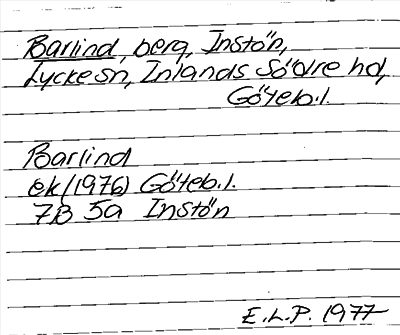 Barlind, berg, Instön,
Lycke sn, Inlands Södre hd,
Göteb.l.
Barlind
ek (1976) Göteb.l.
7B 5a Instön
E.L.P. 1977